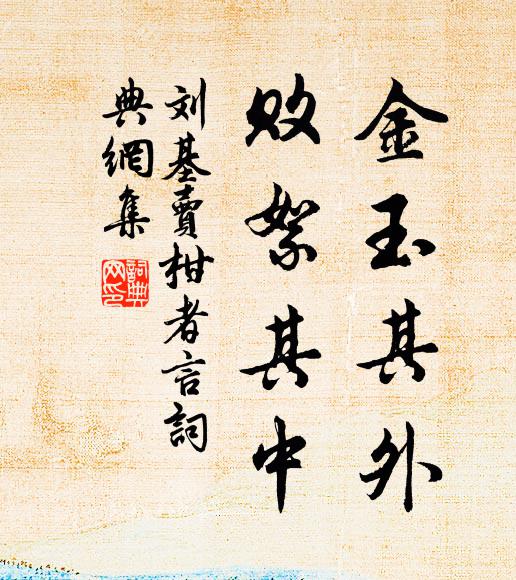 金玉其外
敗絮其中
刘基賣柑者言詞
典網集
詞典
网印